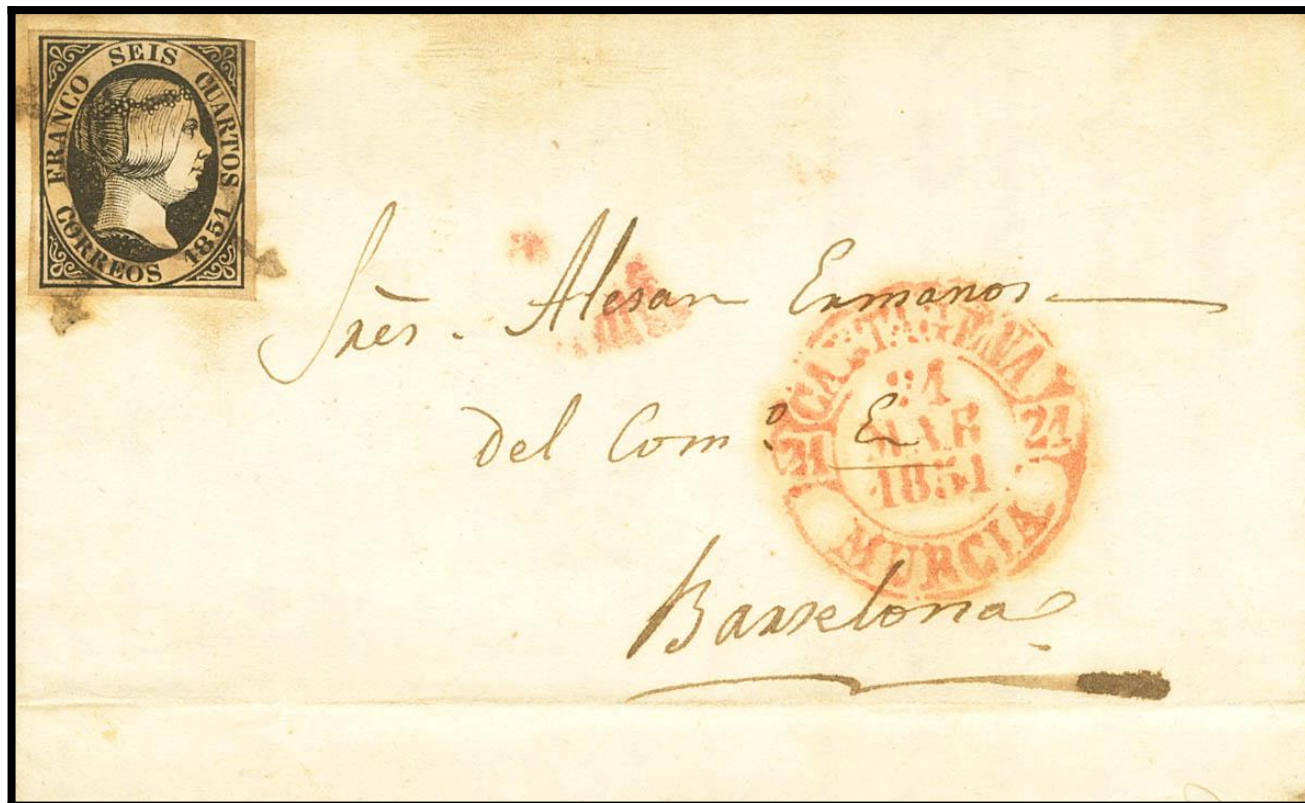 FRANCO SEIS CUARTOS
CORREOS 1851
Sres. Alesan Ermanos
del Com.º E
Barselona
CARTAGENA
21 MAR 1851
21 21
MURCIA